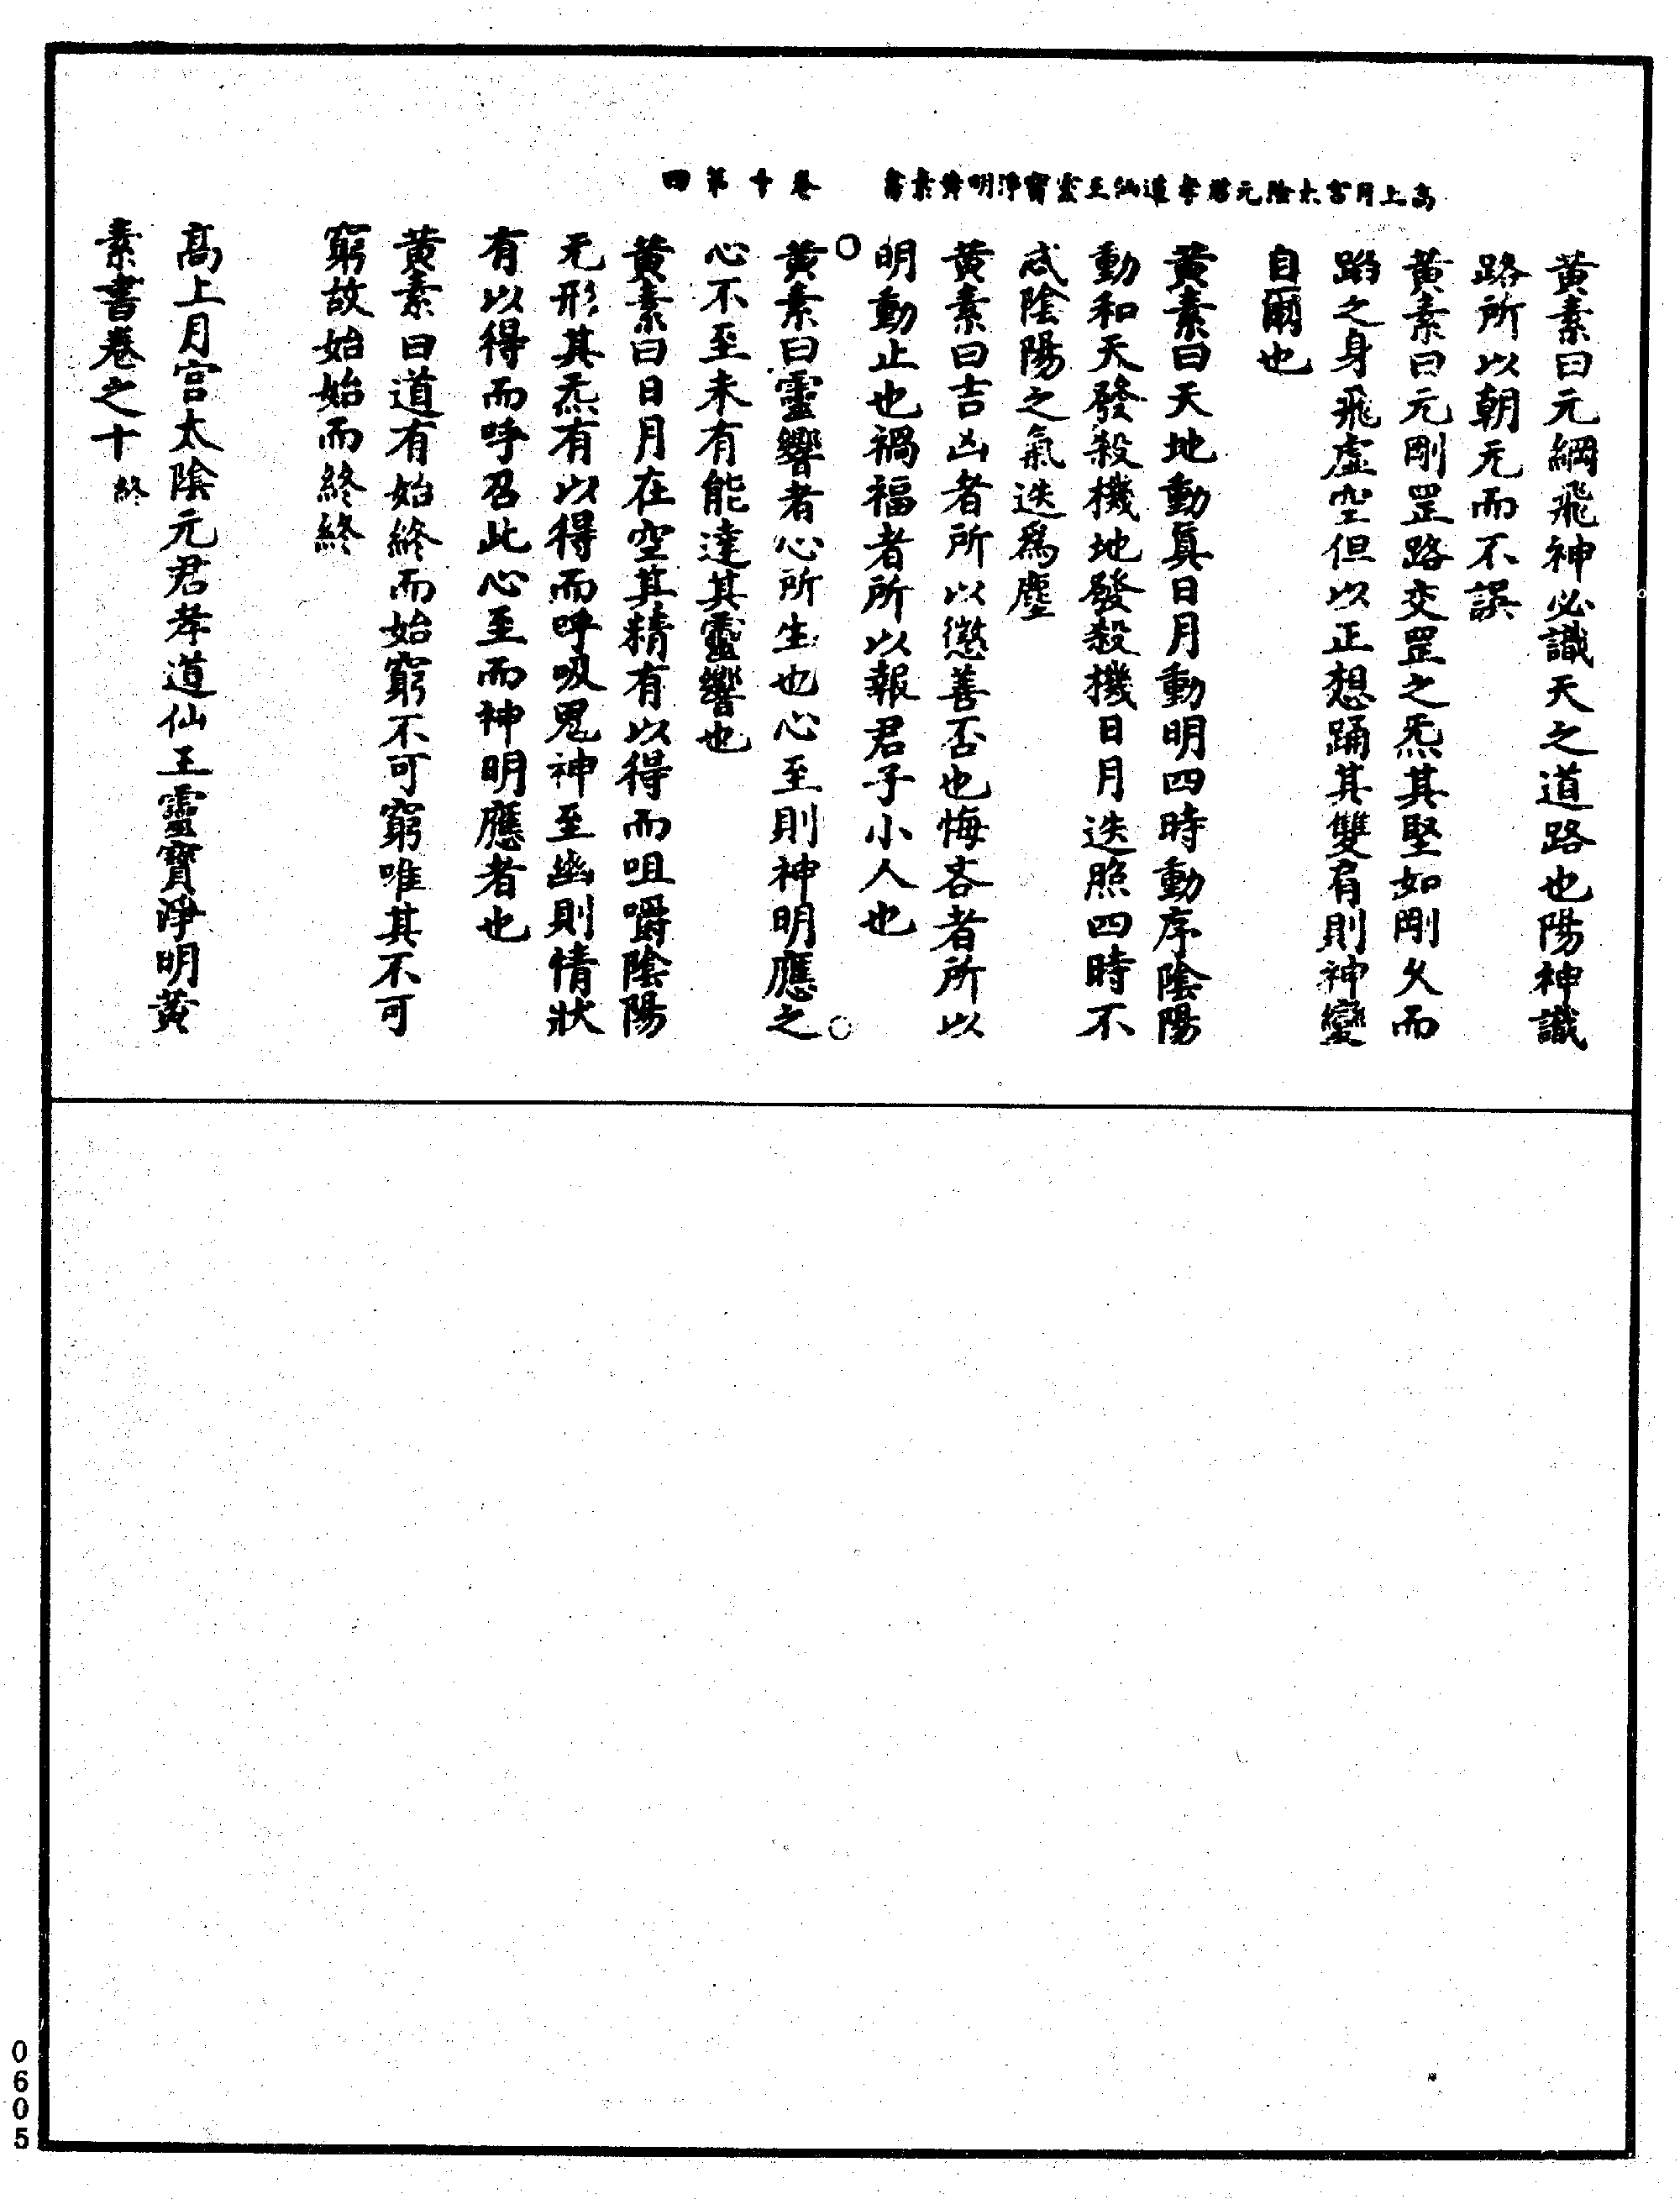 高上月宮太陰元君孝道仙王靈寶淨明黃素書　卷十　第四
黃素曰元綱飛神必識天之道路也陽神識
路所以朝元而不誤
黃素曰元剛罡路交罡之炁其堅如剛久而
蹈之身飛虛空但以正想踊其雙肩則神變
自爾也
黃素曰天地動真日月動明四時動序陰陽
動和天發殺機地發殺機日月迭照四時不
忒陰陽之氣迭為塵
黃素曰吉凶者所以懲善否也悔吝者所以
明動止也禍福者所以報君子小人也
黃素曰靈響者心所生也心至則神明應之
心不至未有能達其靈響也
黃素曰日月在空其精有以得而咀嚼陰陽
无形其炁有以得而呼吸鬼神至幽則情狀
有以得而呼召此心至而神明應者也
黃素曰道有始終而始窮不可窮唯其不可
窮故始始而終終
高上月宮太陰元君孝道仙王靈寶淨明黃
素書卷之十終
0605